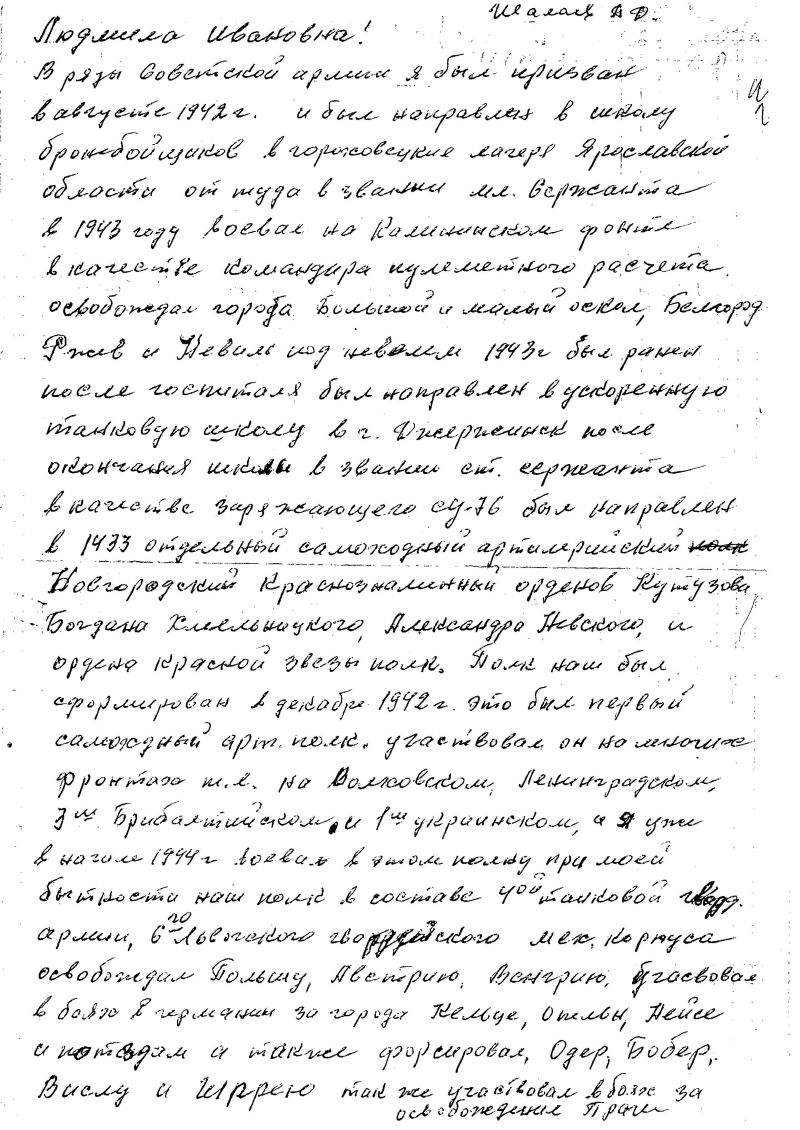 Шалаев А Ф.
Людмила Ивановна!
В ряды Советской армии я был призван
в августе 1942 г. и был направлен в школу
бронебойщиков в гороховецкие лагеря Ярославской
области от туда в звании мл. Сержанта
в 1943 году воевал на Калининском фронте
в качестве командира пулеметного расчета
освобождал города Большой и малый оскол, Белгород
Ржев и Невиль под невелем 1943г был ранен
после госпиталя был направлен в ускоренную
танковую школу в г. Джержинск после
окончания школы в звании ст. сержанта
в качестве заряжающего СУ-76 был направлен
в 1433 отдельный самоходный артилерийский полк
Новгородский Краснознаменный орденов Кутузова
Богдана Хмельницкого, Александра Невского, и
ордена Красной звезы полк. Полк наш был
сформирован в декабре 1942 г. это был первый
самоходный арт. полк. участвовал он на многих
фронтах т.е. на Волховском, Ленинградском,
3ем Прибалтийском, и 1ом украинском, а я уже
в начале 1944 г воевал в этом полку при моей
бытности наш полк в составе 4ой танковой гвард.
армии, 6го Львовского гвардейского мех. корпуса
освобождал Польшу, Австрию, Венгрию, Участвовал
в боях в германии за города Кельце, Отельн, Нейсе
и потздам а также форсировал, Одер, Бобер,
Вислу и Шррею так же участвовал в боях за
освобождение Праги